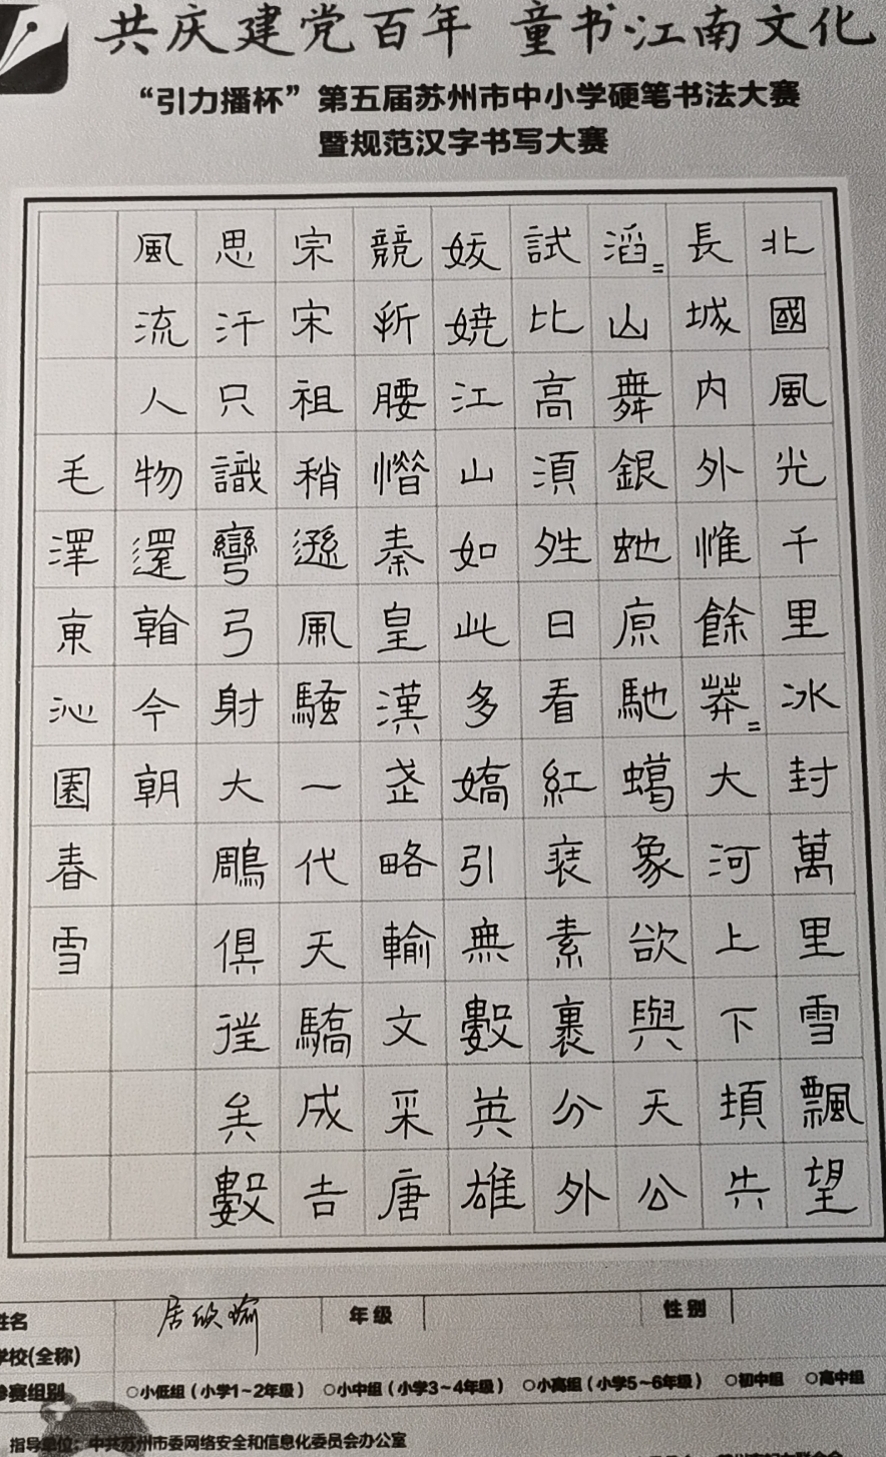 共庆建党百年 童书·江南文化
“引力播杯”第五届苏州市中小学硬笔书法大赛
暨规范汉字书写大赛
北國風光千里冰封萬里雪飄望
長城内外惟餘莽=大河上下頓失
滔=山舞銀蛇原馳蠟象欲與天公
試比高須夝日看紅裝素裹分外
妖嬈江山如此多嬌引無數英雄
競折腰惜秦皇漢武略輸文采唐
宗宋祖稍遜風騷一代天驕成吉
思汗只識彎弓射大鵰俱往矣數
風流人物還看今朝
毛澤東沁園春雪
姓名 居欣瑜 年级 性别
学校(全称)
参赛组别 ○小低组（小学1~2年级） ○小中组（小学3~4年级） ○小高组（小学5~6年级） ○初中组 ○高中组
指导单位：中共苏州市委网络安全和信息化委员会办公室